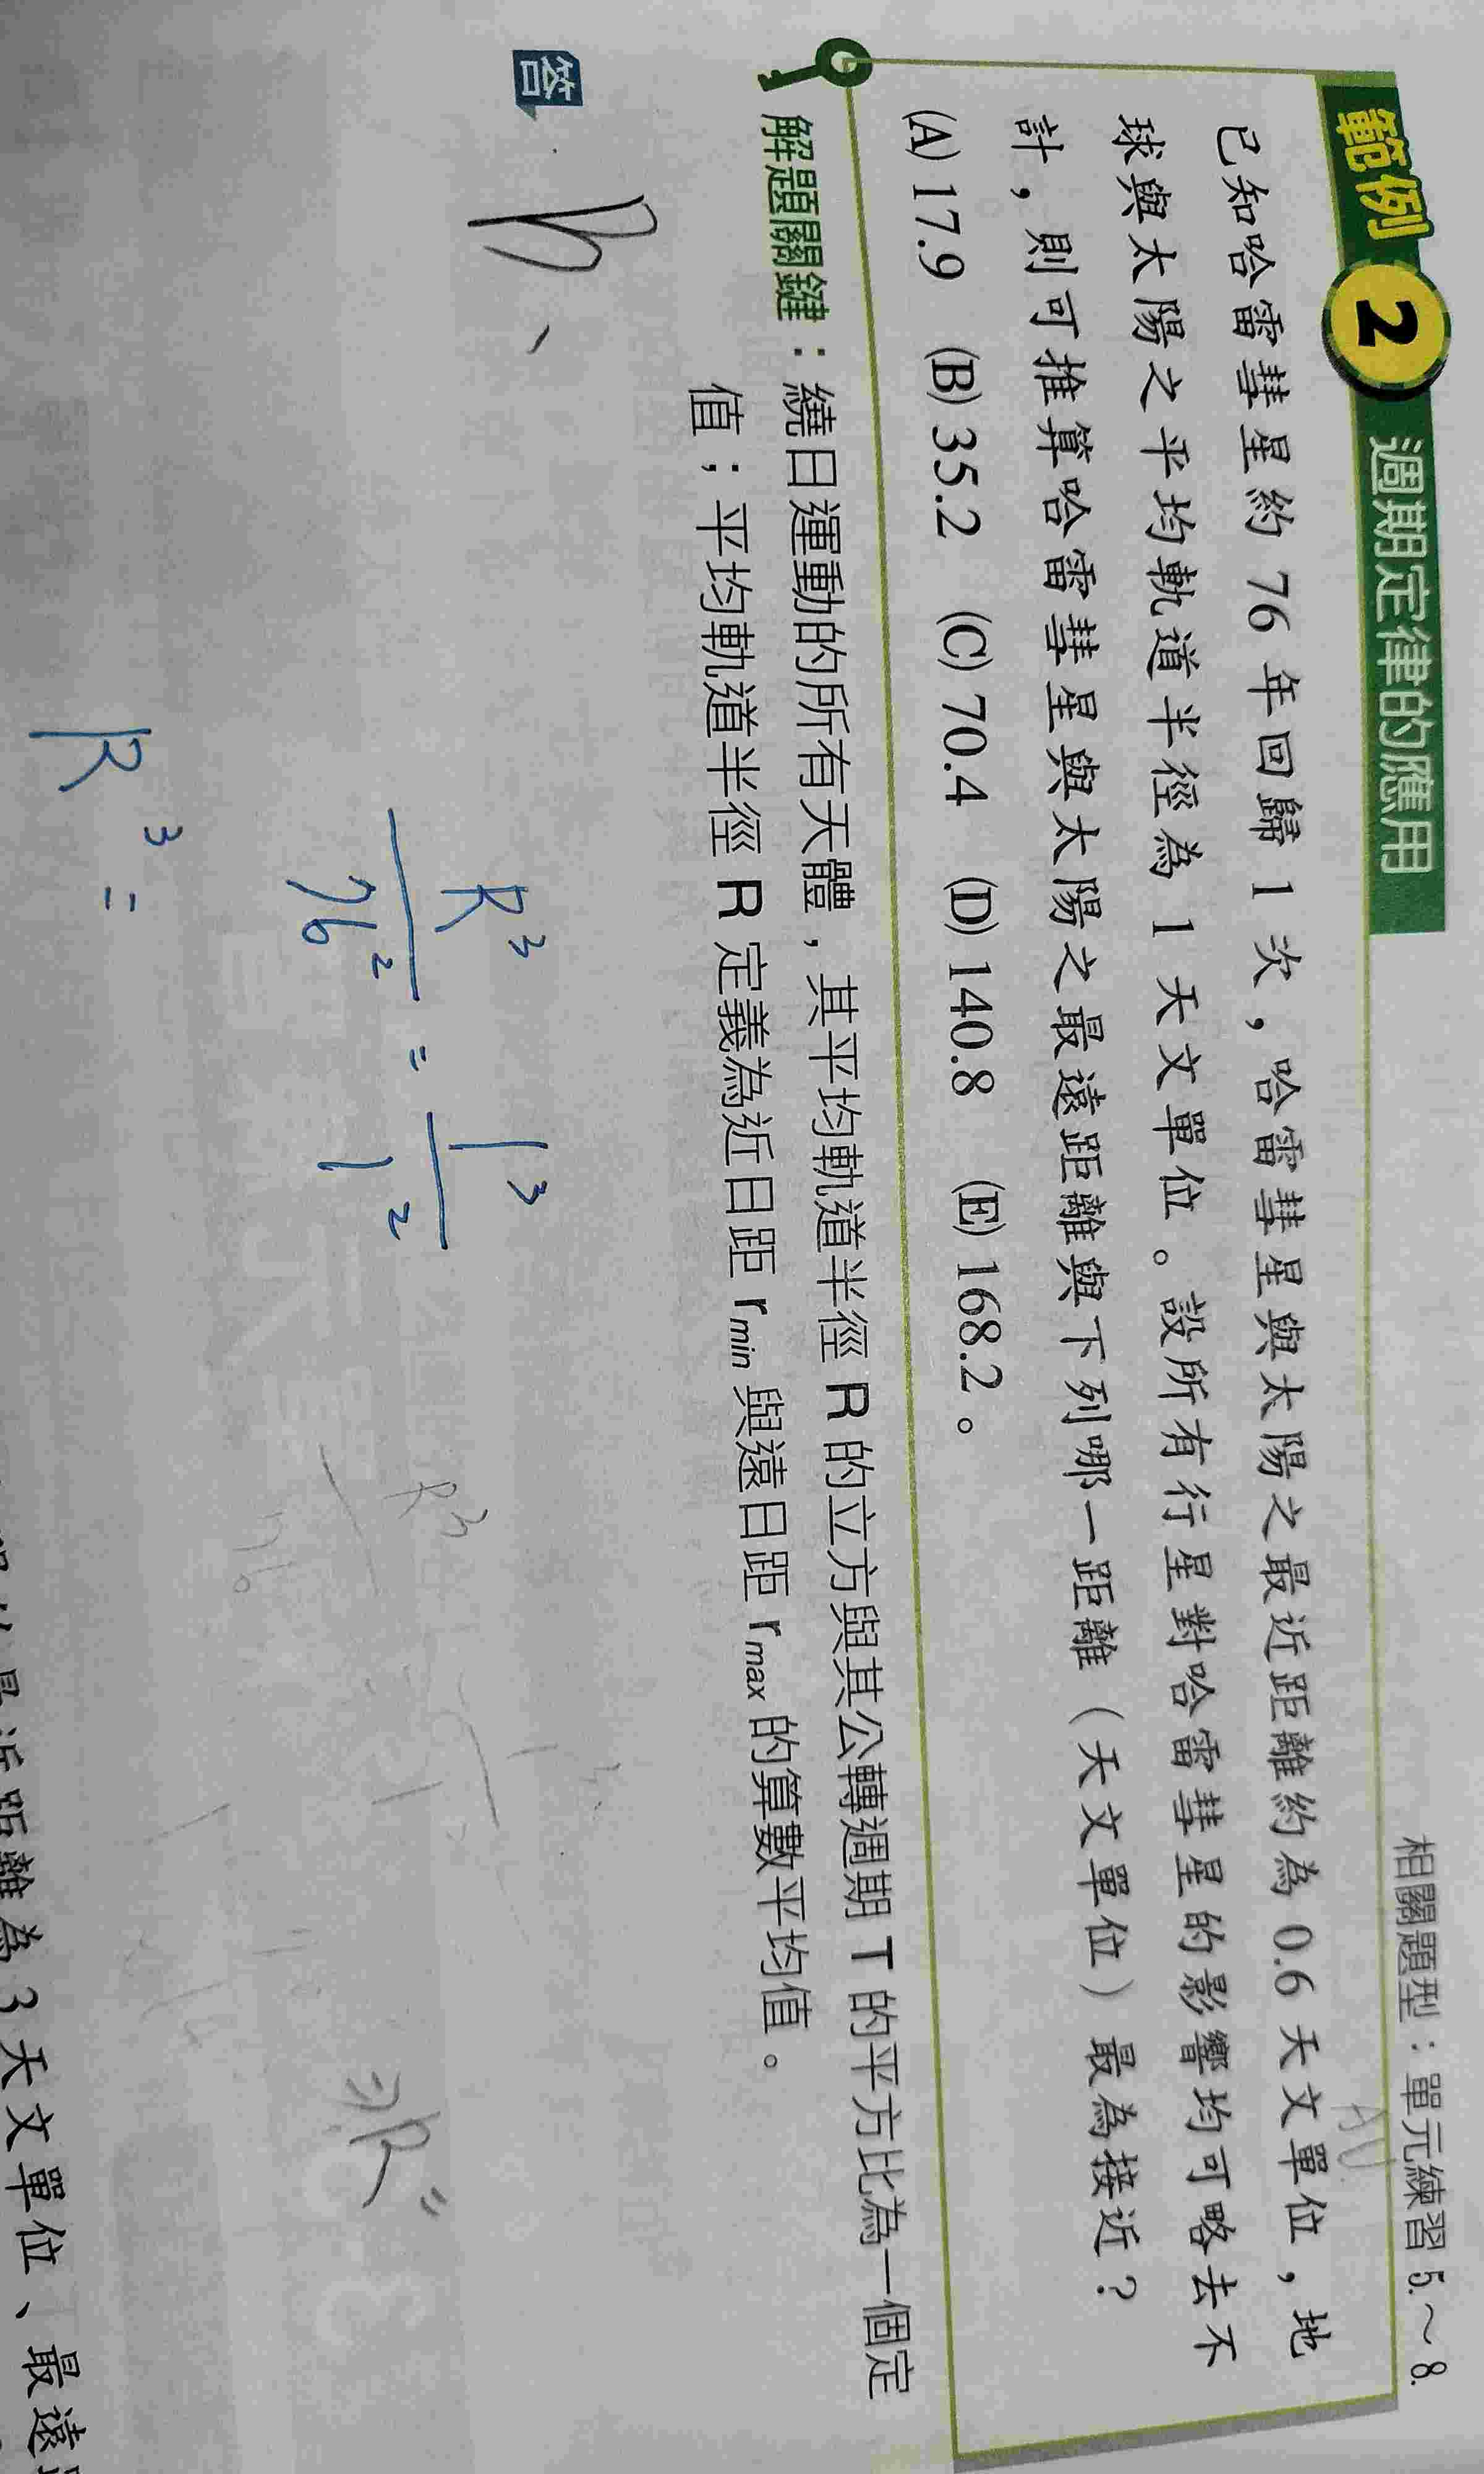 相關題型：單元練習 5.～8.
範例 2 週期定律的應用
AU
已知哈雷彗星約 76 年回歸 1 次，哈雷彗星與太陽之最近距離約為 0.6 天文單位，地
球與太陽之平均軌道半徑為 1 天文單位。設所有行星對哈雷彗星的影響均可略去不
計，則可推算哈雷彗星與太陽之最遠距離與下列哪一距離（天文單位）最為接近？
(A) 17.9 (B) 35.2 (C) 70.4 (D) 140.8 (E) 168.2。
解題關鍵：繞日運動的所有天體，其平均軌道半徑 R 的立方與其公轉週期 T 的平方比為一個定
值；平均軌道半徑 R 定義為近日距 rmin 與遠日距 rmax 的算數平均值。
答 B、
R³/76² = 1³/1²
R³ =
距離為 3 天文單位、最遠